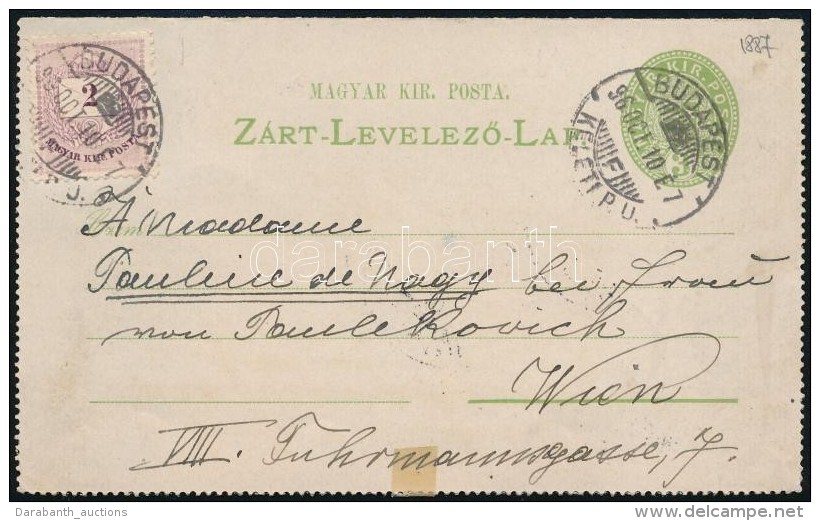 1887
MAGYAR KIR. POSTA.
ZÁRT-LEVELEZŐ-LAP
2
MAGYAR KIR. POSTA
BUDAPEST
BUDAPEST
96 OCT 10 E 7
KELETI P.U.
F
À Madame
Pauline de Nagy bei Frau
von Paulekovich
Wien
VIII. Fuhrmannsgasse, 7.
darabanth
Darabanth_auctions
delcampe.net